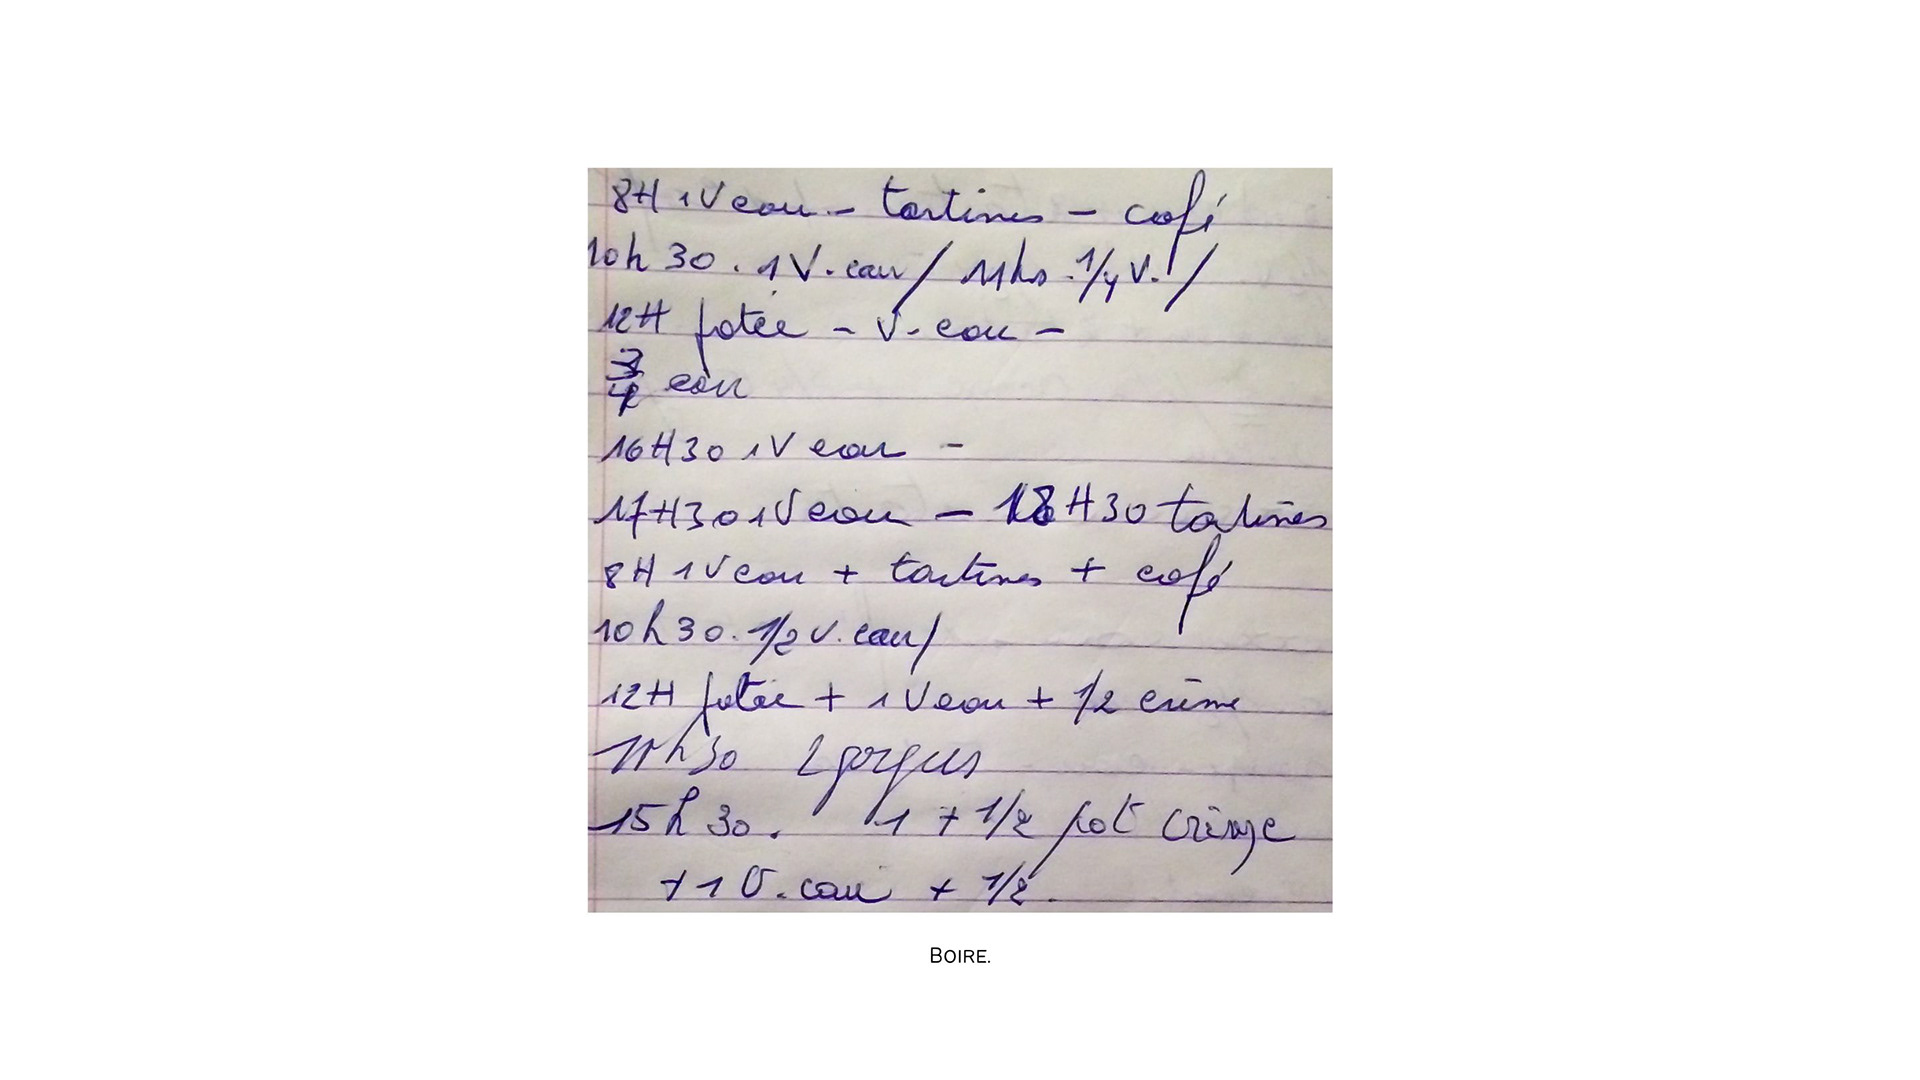 8H 1V eau - tartines - café
10h 30. 1 V. eau / 11hs. 1/4 V. /
12H potée - V. eau -
3/4 eau
16H30 1V eau -
17H30 1V eau - 18H30 tartines
8H 1V eau + tartines + café
10h30. 1/2 V. eau /
12H potée + 1 V eau + 1/2 crème
h30 2 gorgées
15h 30. 1 + 1/2 pot crème
+ 1 V. eau + 1/2.
BOIRE.